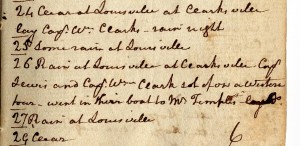 24 Clear at Louisville at Clarksville
lay Capt. Wm. Clarks - rain night
25 Some rain at Louisville
26 Rain at Louisville at Clarksville Capt
Lewis and Capt. Wm Clark set of on a Western
tour - went in their boat to Mr Temples
27 Rain at Louisville
29 Clear
6